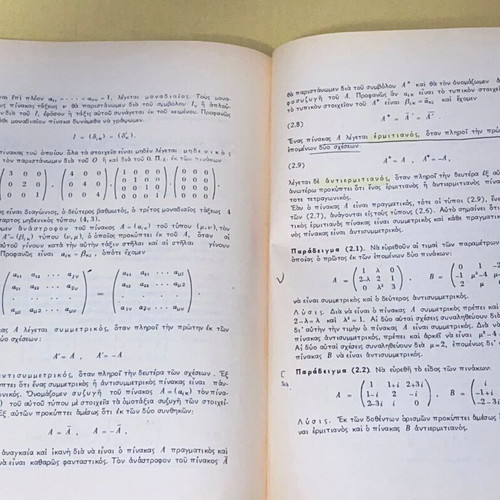 ναι ἐπὶ πλέον α₁₁ = ····· = αᵥᵥ = 1, λέγεται μοναδιαῖος. Τοὺς μονα-
πίνακας τάξεως ν θὰ παριστάνωμεν διὰ τοῦ συμβόλου Iᵥ ἢ ἁπλού-
διὰ τοῦ I, ἐφόσον ἡ τάξις αὐτοῦ συνάγεται ἐκ τοῦ κειμένου. Προφανῶς
μοναδιαῖον πίνακα δυνάμεθα νὰ γράψωμεν
I = (δᵢₖ) = (δⁱₖ).
πίνακας τοῦ ὁποίου ὅλα τὰ στοιχεῖα εἶναι μηδὲν λέγεται μηδενικὸς
τὸν παριστάνωμεν διὰ τοῦ O ἢ καὶ διὰ τοῦ 0. Π.χ. ἐκ τῶν πινάκων
3 0 0
0 2 0
0 0 1
,
4 0 0
0 4 0
0 0 4
,
1 0 0 0
0 1 0 0
0 0 1 0
0 0 0 1
,
0 0 0
0 0 0
0 0 0
0 0 0
εἶναι διαγώνιος, ὁ δεύτερος βαθμωτός, ὁ τρίτος μοναδιαῖος τάξεως 4
μηδενικὸς τύπου (4, 3).
ἀνάστροφον τοῦ πίνακος A = (αᵢₖ) τοῦ τύπου (μ, ν), τὸν
A′ = (βᵢₖ) τύπου (ν, μ), ὁ ὁποῖος προκύπτει ἐκ τοῦ A, ὅταν αἱ
αὐτοῦ γίνουν κατὰ τὴν αὐτὴν τάξιν στῆλαι καὶ αἱ στῆλαι γίνουν
Προφανῶς εἶναι αᵢₖ = βₖᵢ, ὁπότε ἔχομεν
λέγεται συμμετρικός, ὅταν πληροῖ τὴν πρώτην ἐκ τῶν
δύο σχέσεων:
A′ = A , A′ = −A
ἀντισυμμετρικός, ὅταν πληροῖ τὴν δευτέρα τῶν σχέσεων. Ἐξ
ὅτι ἕνας συμμετρικὸς ἢ ἀντισυμμετρικὸς πίνακας εἶναι
Ὀνομάζομεν συζυγῆ τοῦ πίνακος A = (αᵢₖ) τὸν πίνα-
τοῦ αὐτοῦ τύπου μὲ στοιχεῖα τὰ ὁμοτάξια συζυγῆ τῶν στοιχεί-
αὐτῶν προκύπτει ἀμέσως ὅτι ἐκ τῶν δύο συνθηκῶν:
A = Ā , A = −Ā,
ἀναγκαία καὶ ἱκανὴ διὰ νὰ εἶναι ὁ πίνακας A πραγματικὸς καὶ
νὰ εἶναι καθαρῶς φανταστικός. Τὸν ἀνάστροφον τοῦ πίνακος Ā
θὰ παριστάνωμεν διὰ τοῦ συμβόλου A* καὶ θὰ τὸν ὀνομάζωμεν
φοσυζυγῆ τοῦ A. Προφανῶς ἂν αᵢₖ εἶναι τὸ τυπικὸν
τὸ τυπικὸν στοιχεῖον τοῦ A* εἶναι βᵢₖ = ᾱₖᵢ καὶ ἔχομεν
(2.8)
Ἕνας πίνακας A λέγεται ἑρμιτιανός, ὅταν πληροῖ τὴν πρώτην
ἑπομένων δύο σχέσεων:
(2.9) A* = A , A* = −A,
λέγεται δὲ ἀντιερμιτιανός, ὅταν πληροῖ τὴν δευτέραν ἐξ αὐ
ἀνωτέρω προκύπτει ὅτι ἕνας ἑρμιτιανὸς ἢ ἀντιερμιτιανὸς πίνακας
τοτε τετραγωνικός.
Ἐὰν ὁ πίνακας A εἶναι πραγματικός, τότε οἱ τύποι (2.9), ἕνεκα
τῶν (2.7), ἀνάγονται εἰς τοὺς τύπους (2.6). Αὐτὸ σημαίνει ὅτι
τικὸς ἑρμιτιανὸς πίνακας εἶναι συμμετρικὸς καὶ κάθε πραγματικὸς
νὸς πίνακας εἶναι ἀντισυμμετρικός.
Παράδειγμα (2.1). Νὰ εὑρεθοῦν αἱ τιμαὶ τῶν παραμέτρων
ὁποίας ὁ πρῶτος ἐκ τῶν ἑπομένων δύο πινάκων:
A =
1 λ 0
2−λ 2 1
0 λ² 3
, B =
0 1 −2
−1 μ²−4 μ
νὰ εἶναι συμμετρικὸς καὶ ὁ δεύτερος ἀντισυμμετρικός.
Λύσις. Διὰ νὰ εἶναι ὁ πίνακας A συμμετρικὸς πρέπει καὶ
2−λ = λ καὶ λ² = 1. Αἱ δύο αὐταὶ σχέσεις συναληθεύουν διὰ
δι᾽ αὐτὴν τὴν τιμὴν ὁ πίνακας A εἶναι συμμετρικός. Διὰ νὰ
πίνακας B ἀντισυμμετρικός, πρέπει καὶ ἀρκεῖ νὰ εἶναι μ²−4
Αἱ δύο αὐταὶ σχέσεις συναληθεύουν διὰ μ=2, ἑπομένως δι᾽
πίνακας B εἶναι ἀντισυμμετρικός.
Παράδειγμα (2.2). Νὰ εὑρεθῇ τὸ εἶδος τῶν πινάκων.
A =
1 1+i 2+3i
1−i 2 −i
2−3i i 0
, B =
i
−1+i
−2+3i
Λύσις. Ἐκ τῶν δοθέντων ὁρισμῶν προκύπτει ἀμέσως
ναι ἑρμιτιανὸς καὶ ὁ πίνακας B ἀντιερμιτιανός.